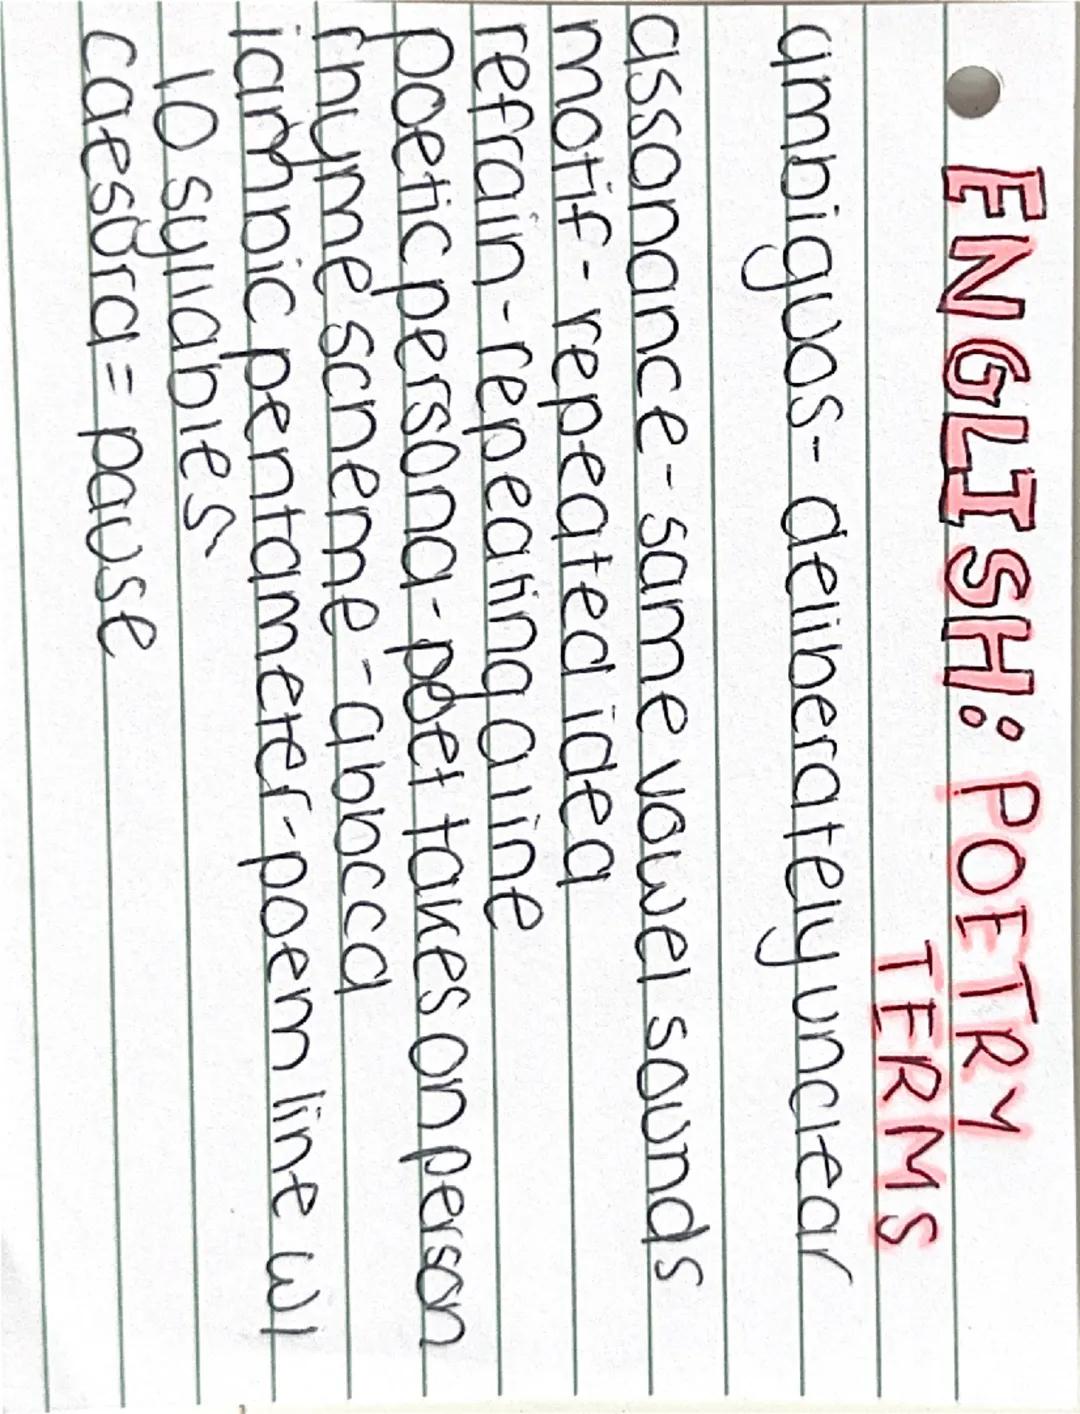 ENGLISH: POETRY
TERMS
ambiguos- deliberately unclear
assonance- same vowel sounds
motif- repeated idea
refrain- repeating a line
poetic persona- poet takes on person
rhyme scheme- abbcca
iambic pentameter- poem line w/
10 syllables
caesura= pause